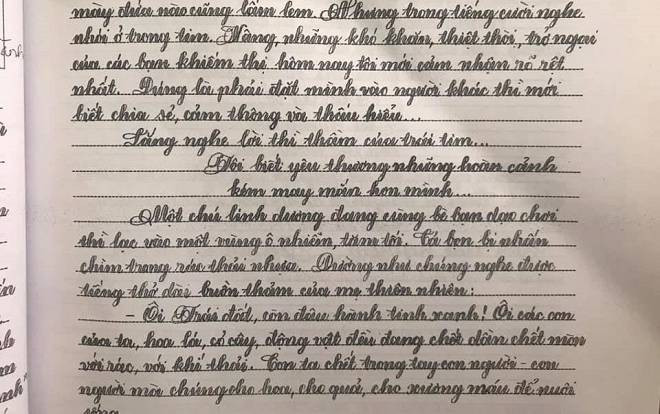 mày đứa nào cũng lấm lem. Nhưng trong tiếng cười nghe
nhói ở trong tim. Vâng, những khó khăn, thiệt thòi, trở ngại
của các bạn khiếm thị hôm nay tôi mới cảm nhận rõ rệt
nhất. Đúng là phải đặt mình vào người khác thì mới
biết chia sẻ, cảm thông và thấu hiểu...
Lắng nghe lời thì thầm của trái tim...
Tôi biết yêu thương những hoàn cảnh
kém may mắn hơn mình...
Một chú linh dương đang cùng bè bạn dạo chơi
thì lạc vào một vùng ô nhiễm, tăm tối. Cả bọn bị nhấn
chìm trong rác thải nhựa. Dường như chúng nghe được
tiếng thở dài buồn thảm của mẹ thiên nhiên:
- Ôi Trái đất, còn đâu hành tinh xanh! Ôi các con
của ta, hoa lá, cỏ cây, động vật đều đang chết dần chết mòn
với rác, với khí thải. Con ta chết trong tay con người - con
người mà chúng cho hoa, cho quả, cho xương máu để nuôi
sống